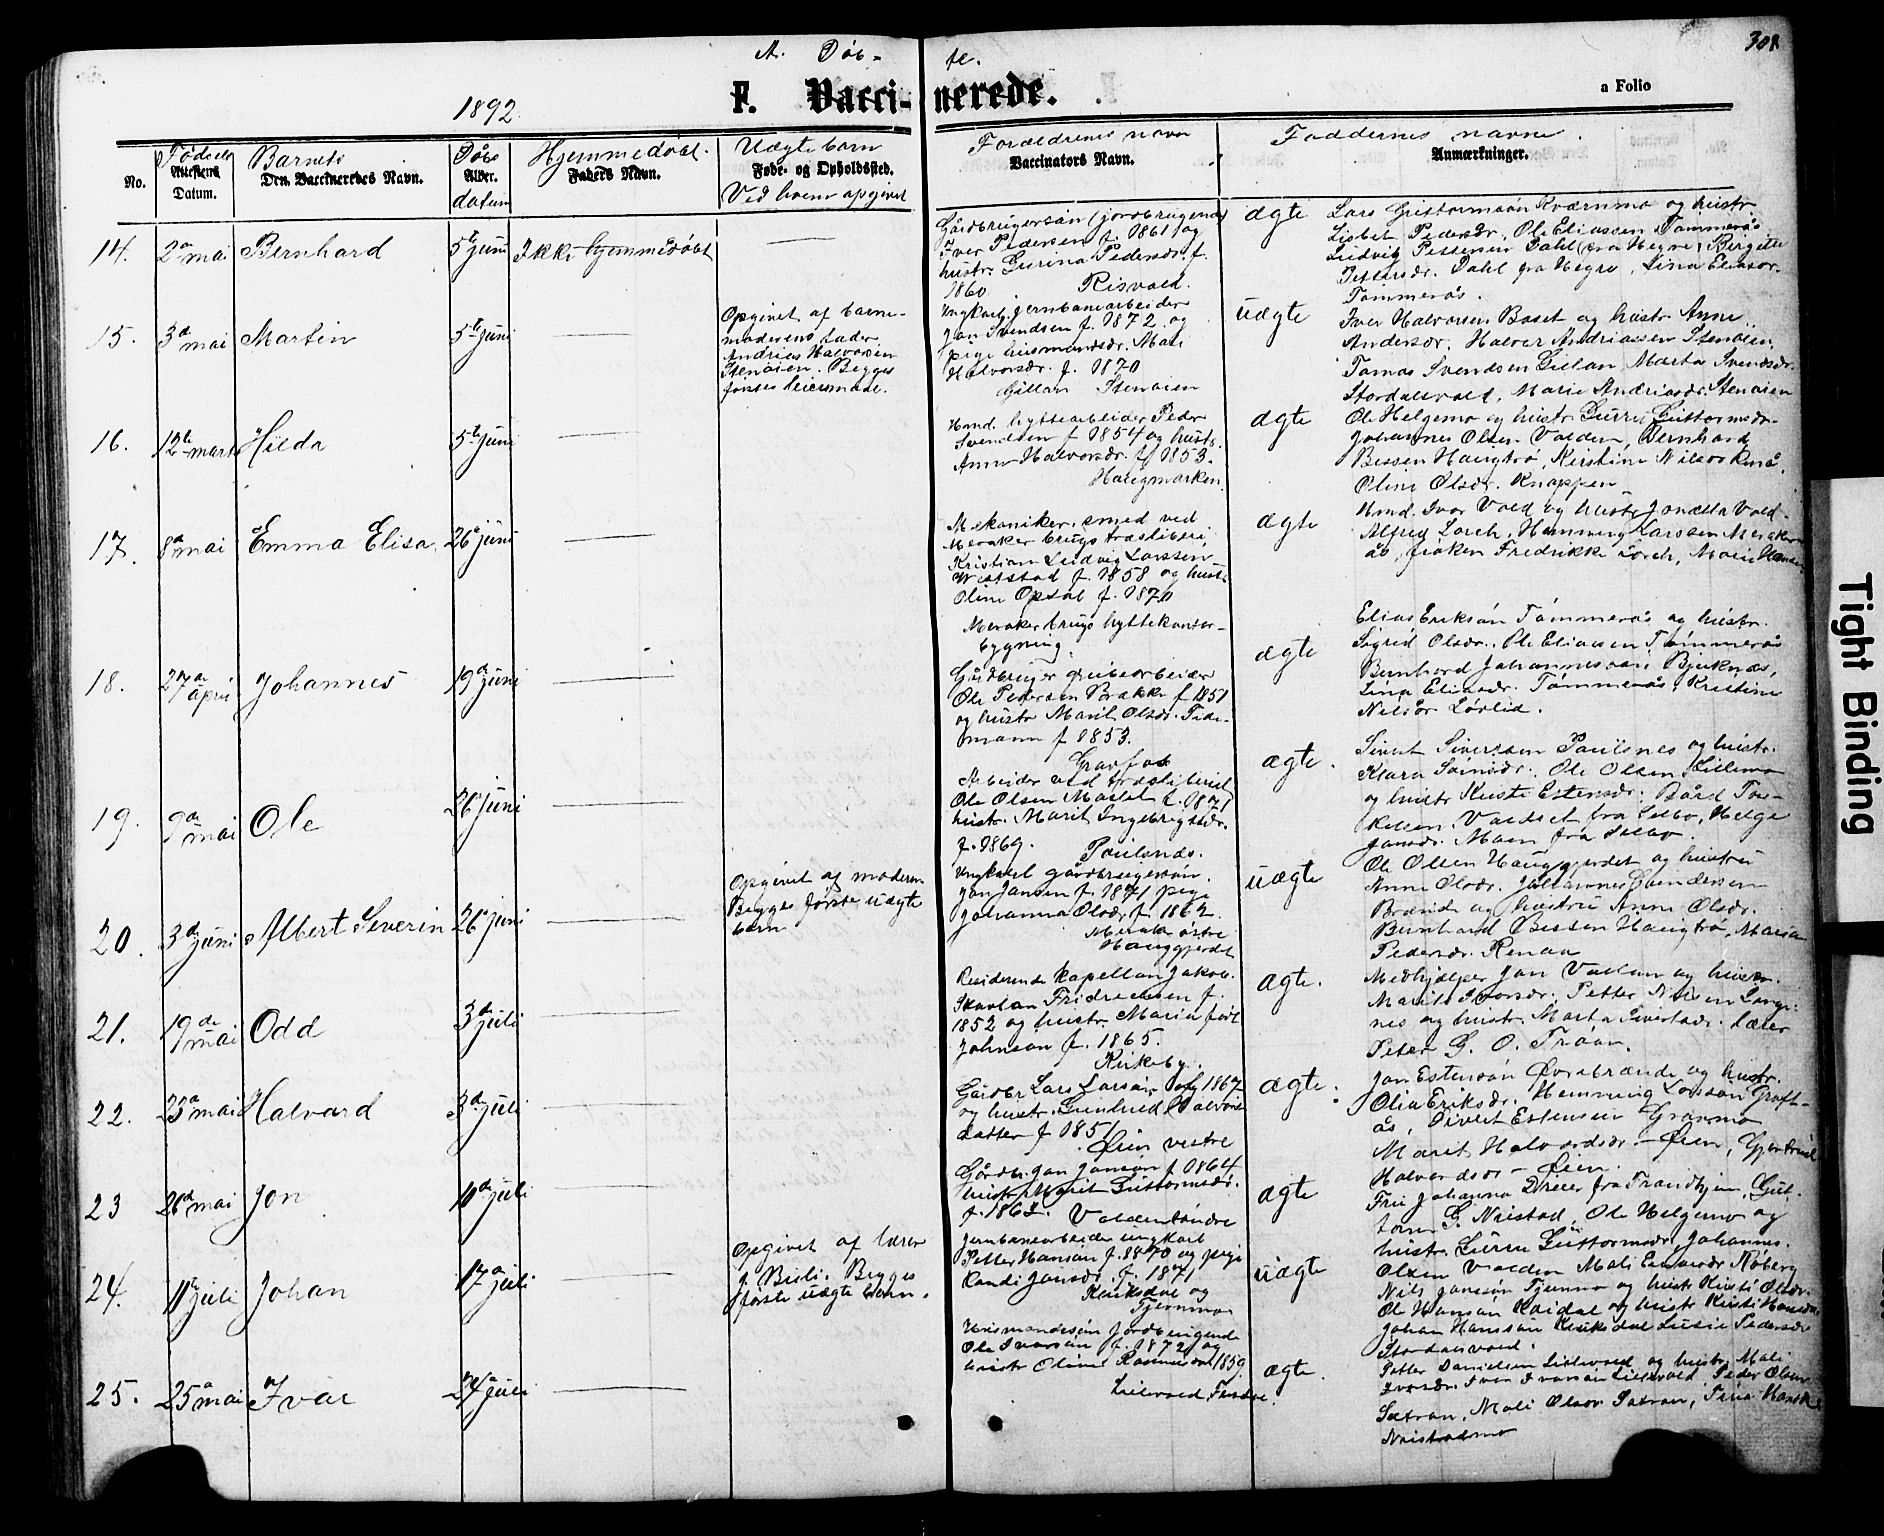 A. Døb- te.
308
1892.
F. Vacci- nerede.
a Folio
No.
Fødsels
Attestens
Datum.
Barnets
Den Vaccineredes Navn.
Dåbs
Alder.
datum
Hjemmedøbt.
Faders Navn.
Uægte barn
Føde- og Opholdssted.
Ved hvem opgivet
Forældrenes navn
Vaccinators Navn.
Faddernes navne.
Anmærkninger.
14. 2den mai Bernhard 5te juni Ikke hjemmedøbt
Gårdbrugersøn (jordbrugende)
Iver Pedersen f. 1861 og
hustr. Gurina Pedersdr. f.
1860 Risvold.
ægte
Lars Guttormsøn Kværnmo og hustr
Lisbet Pedersdr, Ole Eliassen Tømmerås
Ludvig Pettersen Dahl (fra Hegre) Bergitte
Pettersdr. Dahl fra Hegre, Lina Eliasdr.
Tømmerås.
15. 3de mai Martin 5te juni
Opgivet af barne-
moderens fader
Andrias Halvorsen
Stenøien. Begges
første leiermaal.
Ungkarl, jernbanearbeider
Jon Svendsen f. 1872 og
pige husmandsdr. Mali
Halvorsdr. f. 1870
Gillan Stenøien
uægte
Iver Halvorsen Baset og hustr Anne
Andersdr. Halvor Andriassen Stenøien,
Tomas Svendsen Gullan Marta Svendsdr.
Stordalsvold, Marie Andriasdr. Stenøien
16. 12te marts Hilda 5te juni
Hmd. hyttearbeider Peder
Svendsen f 1854 og hustr.
Anne Halvorsdr. f. 1853.
Haugmarken
ægte
Ole Helgemo og hustr. Gurru Guttormsdr.
Johannes Olsen Valden, Bernhard
Bessen Haugtrø, Kirstine Nilsdr Renå,
Oline Olsdr. Knoppen
17. 8de mai Emma Elisa 26de juni
Mekaniker, smed ved
Meraker brugs træsliberi
Kristian Ludvig Larssen
Wiststad f. 1858 og hustr.
Oline Opsal f. 1870
Meraker brugs hyttekontor-
bygning.
ægte
Hmd. Ivar Vold og hustr Jonetta Vold.
Alfred Lorch, Hemming Larssen Meraker-
ås, frøken Fredrikke Lorch, Marie Hansen
18. 27de april Johannes 19de juni
Gårdbruger grubearbeider
Ole Petersen Brække f 1851
og hustr Marit Olsdr. Tide-
mann f 1853.
ægte
Elias Eriksøn Tømmerås og hustr.
Sigrid Olsdr. Ole Eliassen Tømmerås
Bernhard Johannessøn Bjerknås,
Lina Eliasdr. Tømmerås, Kristine
Nilsdr Lövlid.
19. 9de mai Ole 26de juni
Arbeider ved træsliberiet
Ole Olsen Maslet f. 1871
hustr. Marit Ingebrigtsdr.
f. 1869. Paulsnås.
ægte.
Sivert Siversen Paulsnes og hustr.
Klara Svinsdr. Ole Olsen Lillemo
og hustr Kirsti Estensdr. Bård Tor-
kelsen. Valdset fra Selbo, Helge
Jonsdr. Moen fra Selbo.
20. 3de juni Albert Severin 26de juni
Opgivet af moderen.
Begges første uægte
barn
Ungkarl gårdbrugersøn.
Jon Jonsen f. 1871 pige
Johanna Olsdr f. 1862.
Merak østre
Hauggjerdet
uægte
Ole Olsen Hauggjerdet og hustru
Anne Olsdr. Johannes Svendsen
Brænde og hustru Anne Olsdr.
Bernhard Bessen Haugtrø, Maria
Pedersdr. Renaa
21. 19de mai Odd 3de juli
Residerende kapellan Jakob
Skavlan Fridrechsen f.
1852 og hustr. Maria født
Johnson f. 1865.
Kirkeby.
ægte.
Medhjælper Jon Vollan og hustr.
Marit Ivarsdr. Petter Nilsen Lang-
nes og hustr. Marta Sivertsdr. Lærer
Peter G. O. Trøan.
22. 23de mai Halvard 3de juli
Gårdbr Lars Larsøn f 1867
og hustr. Gunhild Halvors-
datter f 1851
Øien vestre
ægte.
Jon Estensøn Øvrebrænde og hustr.
Olia Eriksdr. Hemming Larssøn Graft-
ås, Sivert Estensen Grønmo
Marit Halvardsdr. Øien, Gjertrud
Halvardsdr - Øien.
23 26de mai Jon 10de juli
Gårdbr. Jon Jonsøn f 1864
hustr. Marit Guttormsdr.
f. 1862. Valden søndre
ægte
Fru Johanna Dreier fra Trondhjem, Gut-
torm G. Neistad, Ole Helgemo og
hustr. Gurru Guttormsdr. Johannes
Olsen Valden Mali Nøberg
24. 11te juli Johan 17de juli
Opgivet af lærer
J. Bisli. Begges
første uægte barn.
Jernbanearbeider ungkarl
Petter Hansøn f. 1870 og pige
Randi Jonsdr. f. 1871
Kruksdal og
Tjernmo
uægte
Nils Jonssøn Tjernmo og hustr Kirsti Olsdr.
Ole Hansøn Kaidal og hustr Kirsti Hansdr.
Johan Hanssøn Kruksdal Lusie Pedersdr
Stordalsvold.
25. 25de mai Ivar 24de juli
Husmandssøn jordbrugende
Ole Ivarsøn f. 1872 og
hustr Oline Rasmusdr 1859.
Lillevold Fundve.
ægte.
Petter Danielsen Lillevold og hustr. Mali
Ivarsdr. Iver Ivarsøn Lillevold Peder Olsen
Sætran, Mali Olsdr Sætran,
Neistadmo
Tight Binding